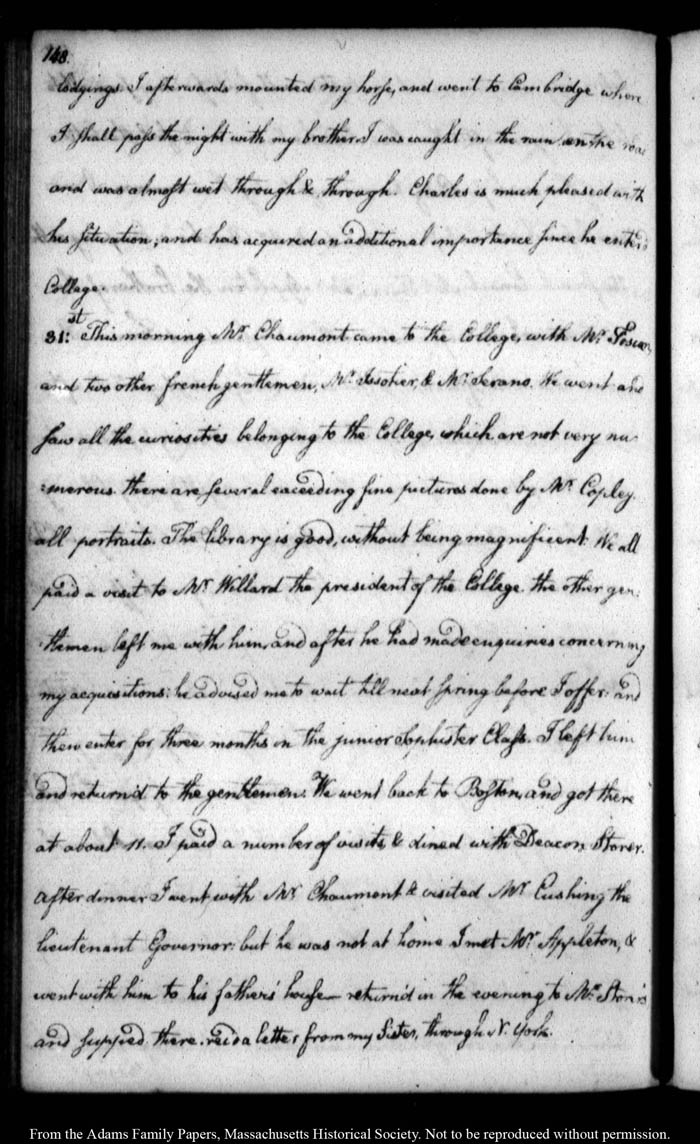 148.
lodgings. I afterwards mounted my horse, and went to Cambridge where
I shall pass the night with my brother. I was caught in the rain on the road
and was almost wet through & through. Charles is much pleased with
his situation, and has acquired an additional importance since he enter'd
College.
31st. This morning Mr. Chaumont came to the College, with Mr.
and two other french gentlemen, Mr. Issotier, & Mr. Serano. We went and
saw all the curiosities belonging to the College, which are not very nu-
:merous. there are several exceeding fine pictures done by Mr. Copley.
all portraits. The library is good, without being magnificent. We all
paid a visit to Mr. Willard the president of the College. the other gen:
tlemen left me with him, and after he had made enquiries concerning
my acquisitions: he advised me to wait till next spring before I offer: and
then enter for three months in the junior Sophister Class. I left him
and return'd to the gentlemen. We went back to Boston, and got there
at about 11. I paid a number of visits, & dined with Deacon Storer.
after dinner I went with Mr. Chaumont & visited Mr. Cushing the
lieutenant Governor: but he was not at home I met Mr. Appleton, &
went with him to his father's house— return'd in the evening to Mr. Storer's
and supped there. rec'd a letter from my Sister, through N. York.
From the Adams Family Papers, Massachusetts Historical Society. Not to be reproduced without permission.